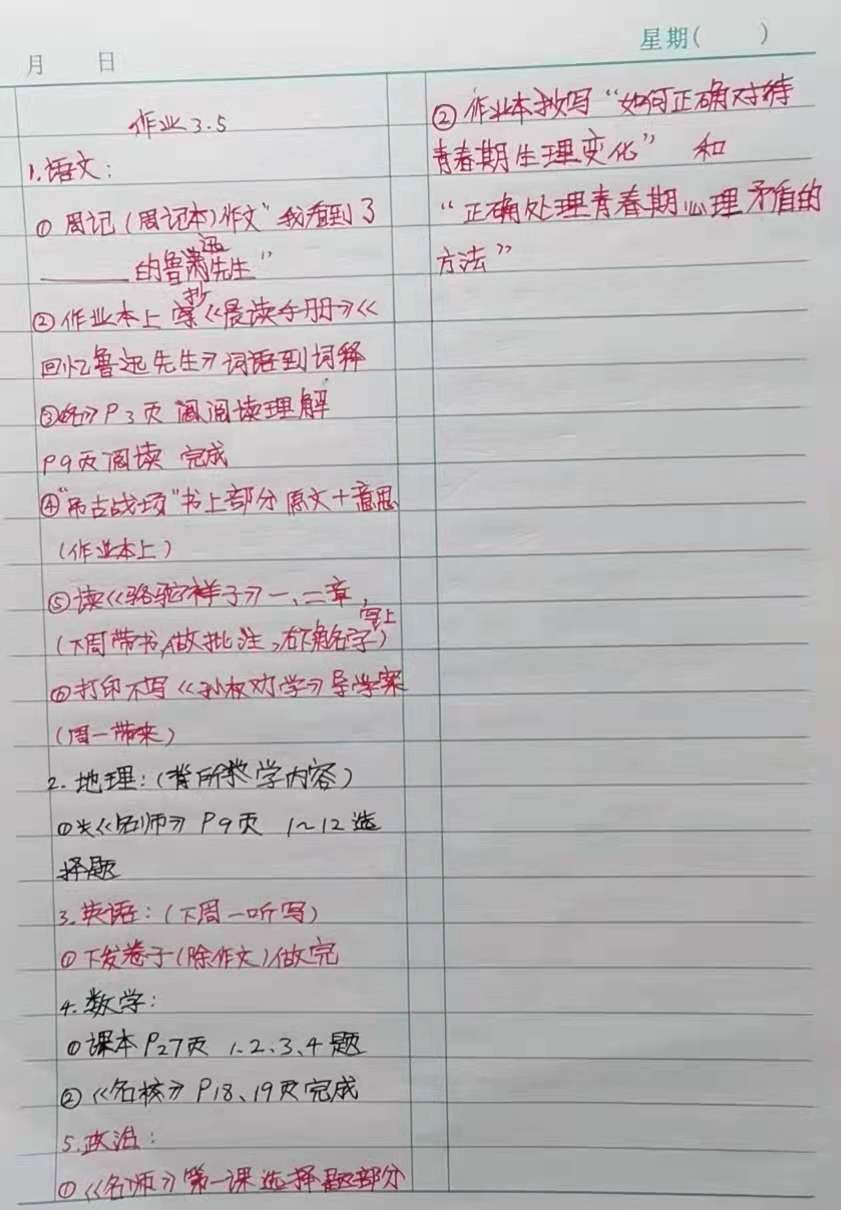 月 日
星期( )
作业3.5
1.语文：
① 周记(周记本)作文“我看到了
______的鲁迅先生”
②作业本上抄《晨读手册》《
回忆鲁迅先生》词语到词释
③《名》P3页 阅读理解
P9页阅读 完成
④“吊古战场”书上部分原文+意思
(作业本上)
⑤读《骆驼祥子》一、二章，
(下周带书,做批注,右下角写上名字)
⑥打印不写《孙权劝学》导学案
(周一带来)
2.地理：(背所教学内容)
①《名师》P9页 1~12选
择题
3.英语：(下周一听写)
①下发卷子(除作文)做完
4.数学：
①课本P27页 1、2、3、4题
②《名校》P18、19页完成
5.政治：
①《名师》第一课选择题部分
②作业本抄写“如何正确对待
青春期生理变化” 和
“正确处理青春期心理矛盾的
方法”